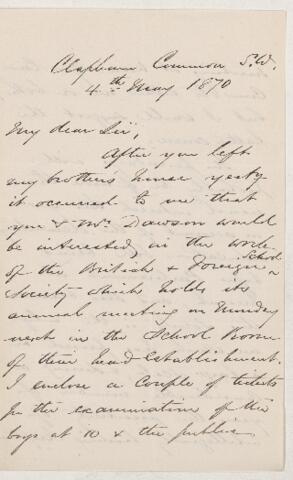 Clapham Common S.W.
4th May 1870
My dear Sir,
After you left
my brother's house yesty
it occurred to me that
you & Mr. Dawson would
be interested in the work
of the British & Foreign School
Society which holds its
annual meeting on Monday
next in the School Room
of their head Establishment.
I enclose a couple of tickets
for the examination of the
boys at 10 & the public